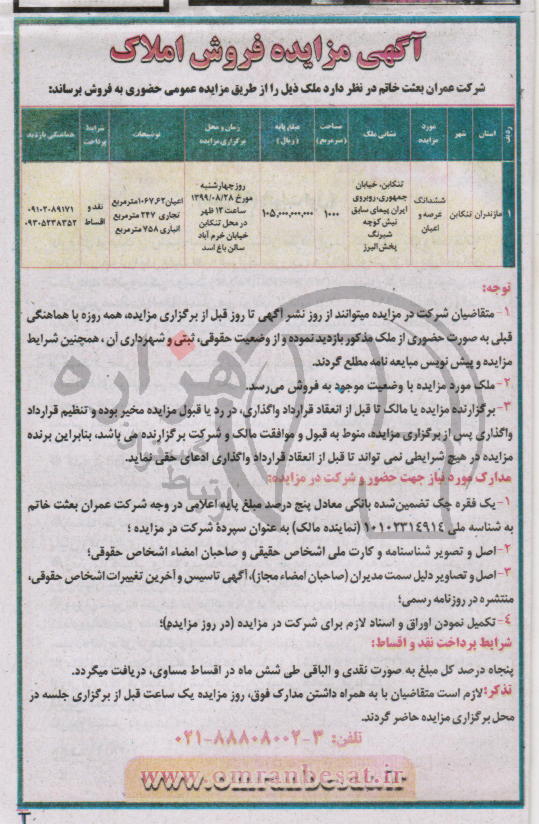 آگهی مزایده فروش املاک
شرکت عمران بعثت خاتم در نظر دارد ملک ذیل را از طریق مزایده عمومی حضوری به فروش برساند:
ردیف | استان | شهر | مورد مزایده | نشانی ملک | مساحت (مترمربع) | مبلغ پایه (ریال) | زمان و محل برگزاری مزایده | توضیحات | شرایط پرداخت | هماهنگی بازدید
۱ | مازندران | تنکابن | ششدانگ عرصه و اعیان | تنکابن، خیابان جمهوری، روبروی ایران پیمای سابق نبش کوچه شبرنگ پخش البرز | ۱۰۰۰ | ۱۰۵,۰۰۰,۰۰۰,۰۰۰ | روز چهارشنبه مورخ ۱۳۹۹/۰۸/۲۸ ساعت ۱۲ ظهر در محل تنکابن خیابان خرم آباد سالن باغ اسد | اعیان ۱۰۶۷,۶۲ مترمربع تجاری ۲۴۷ مترمربع انباری ۷۵۸ مترمربع | نقد و اقساط | ۰۹۱۰۲۰۸۹۱۷۱ ۰۹۳۰۵۲۳۸۳۵۲
توجه:
۱- متقاضیان شرکت در مزایده میتوانند از روز نشر آگهی تا روز قبل از برگزاری مزایده، همه روزه با هماهنگی
قبلی به صورت حضوری از ملک مذکور بازدید نموده و از وضعیت حقوقی، ثبتی و شهرداری آن ، همچنین شرایط
مزایده و پیش نویس مبایعه نامه مطلع گردند.
۲- ملک مورد مزایده با وضعیت موجهد به فروش می‌رسد.
۳- برگزارنده مزایده یا مالک تا قبل از انعقاد قرارداد واگذاری، در رد یا قبول مزایده مخیر بوده و تنظیم قرارداد
واگذاری پس از برگزاری مزایده، منوط به قبول و موافقت مالک و شرکت برگزارنده می باشد، بنابراین برنده
مزایده در هیچ شرایطی نمی تواند تا قبل از انعقاد قرارداد واگذاری ادعای حقی نماید.
مدارک مورد نیاز جهت حضور و شرکت در مزایده:
۱- یک فقره چک تضمین‌شده بانکی معادل پنج درصد مبلغ پایه اعلامی در وجه شرکت عمران بعثت خاتم
به شناسه ملی ۱۰۱۰۲۳۱۴۹۱۴ (نماینده مالک) به عنوان سپردهٔ شرکت در مزایده ؛
۲- اصل و تصویر شناسنامه و کارت ملی اشخاص حقیقی و صاحبان امضاء اشخاص حقوقی؛
۳- اصل و تصاویر دلیل سمت مدیران (صاحبان امضاء مجاز)، آگهی تاسیس و آخرین تغییرات اشخاص حقوقی،
منتشره در روزنامه رسمی؛
۴- تکمیل نمودن اوراق و اسناد لازم برای شرکت در مزایده (در روز مزایده)؛
شرایط پرداخت نقد و اقساط:
پنجاه درصد کل مبلغ به صورت نقدی و الباقی طی شش ماه در اقساط مساوی، دریافت میگردد.
تذکر: لازم است متقاضیان با به همراه داشتن مدارک فوق، روز مزایده یک ساعت قبل از برگزاری جلسه در
محل برگزاری مزایده حاضر گردند.
تلفن: ۳-۸۸۸۰۸۰۰۲-۰۲۱
www.omranbesat.ir
هزاره
ارتباط